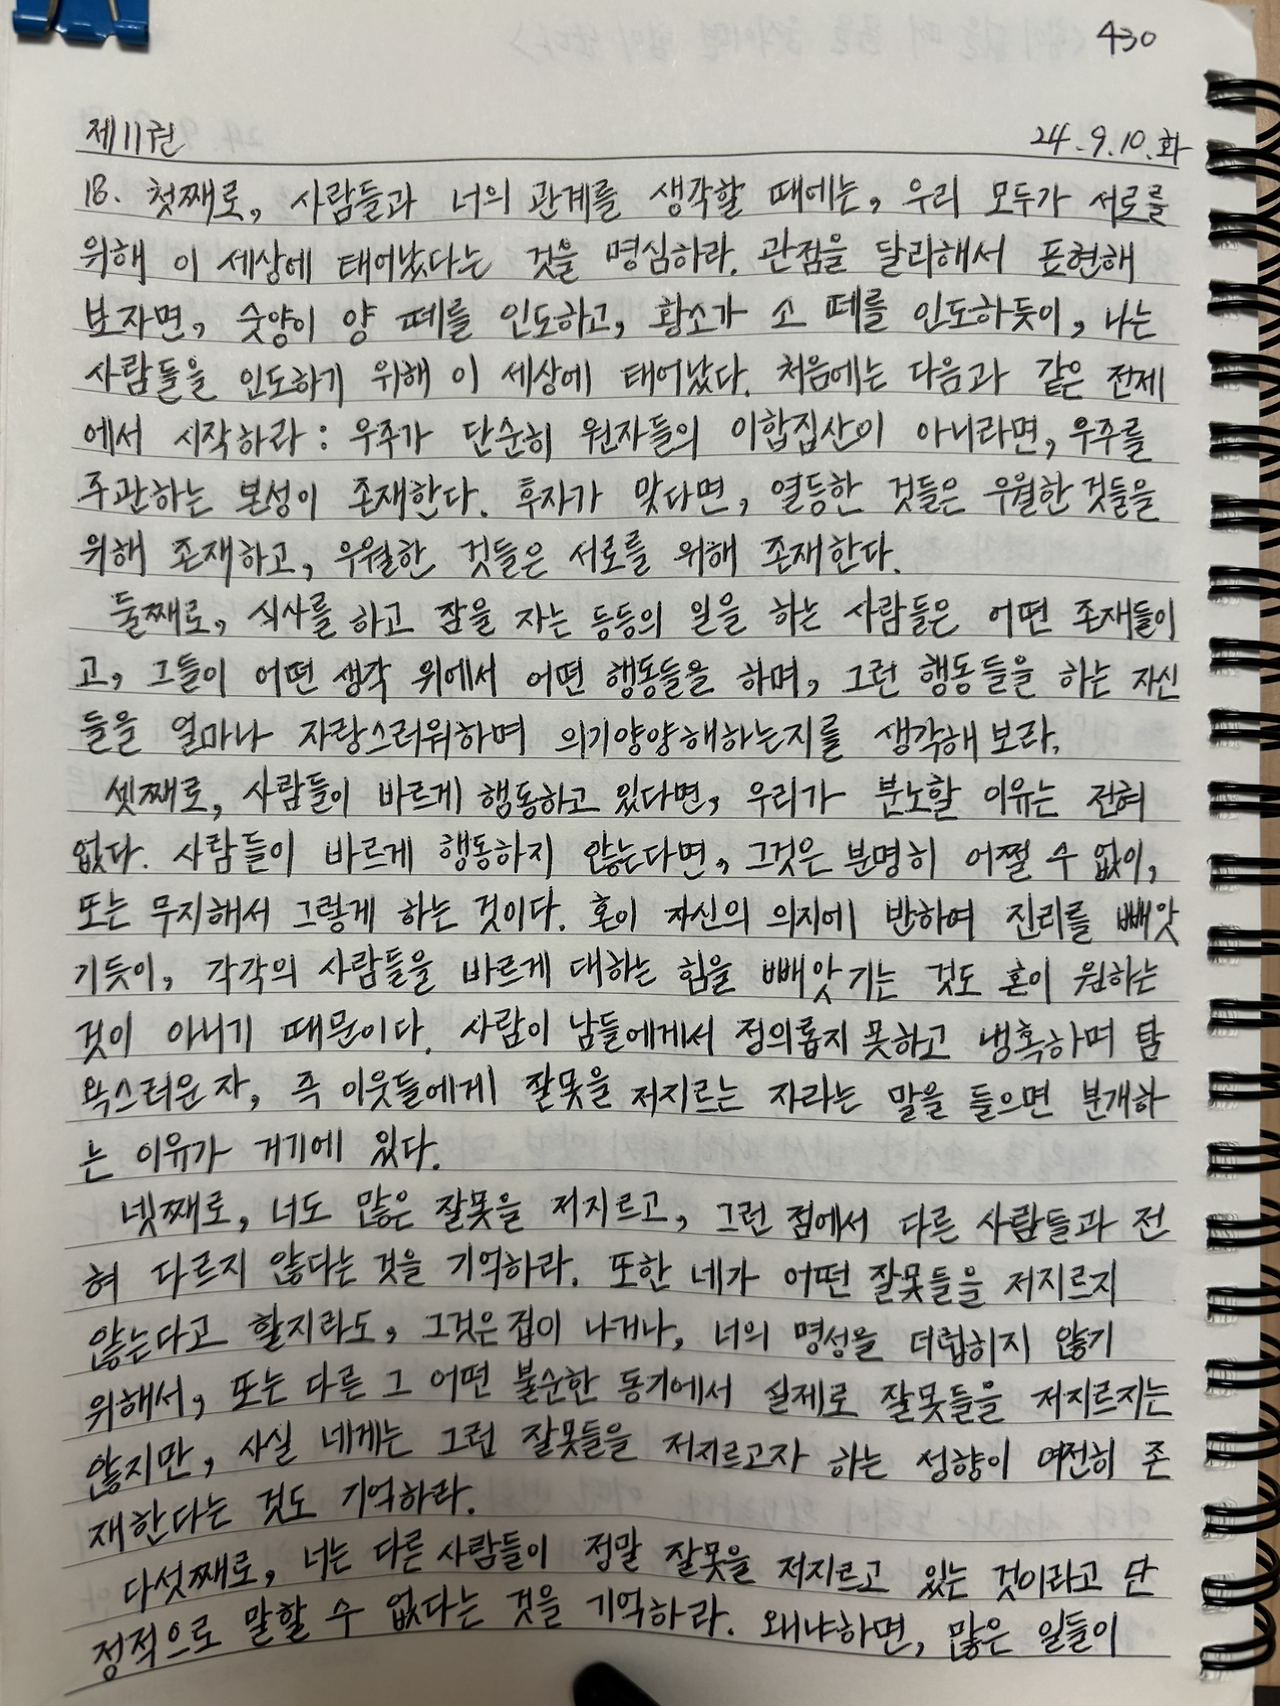 430
제11권 24.9.10.화
18. 첫째로, 사람들과 너의 관계를 생각할 때에는, 우리 모두가 서로를
위해 이 세상에 태어났다는 것을 명심하라. 관점을 달리해서 표현해
보자면, 숫양이 양 떼를 인도하고, 황소가 소 떼를 인도하듯이, 나는
사람들을 인도하기 위해 이 세상에 태어났다. 처음에는 다음과 같은 전제
에서 시작하라 : 우주가 단순히 원자들의 이합집산이 아니라면, 우주를
주관하는 본성이 존재한다. 후자가 맞다면, 열등한 것들은 우월한 것들을
위해 존재하고, 우월한 것들은 서로를 위해 존재한다.
둘째로, 식사를 하고 잠을 자는 등등의 일을 하는 사람들은 어떤 존재들이
고, 그들이 어떤 생각 위에서 어떤 행동들을 하며, 그런 행동들을 하는 자신
들을 얼마나 자랑스러워하며 의기양양해하는지를 생각해 보라.
셋째로, 사람들이 바르게 행동하고 있다면, 우리가 분노할 이유는 전혀
없다. 사람들이 바르게 행동하지 않는다면, 그것은 분명히 어쩔 수 없이,
또는 무지해서 그렇게 하는 것이다. 혼이 자신의 의지에 반하여 진리를 빼앗
기듯이, 각각의 사람들을 바르게 대하는 힘을 빼앗기는 것도 혼이 원하는
것이 아니기 때문이다. 사람이 남들에게서 정의롭지 못하고 냉혹하며 탐
욕스러운 자, 즉 이웃들에게 잘못을 저지르는 자라는 말을 들으면 분개하
는 이유가 거기에 있다.
넷째로, 너도 많은 잘못을 저지르고, 그런 점에서 다른 사람들과 전
혀 다르지 않다는 것을 기억하라. 또한 네가 어떤 잘못들을 저지르지
않는다고 할지라도, 그것은 겁이 나거나, 너의 명성을 더럽히지 않기
위해서, 또는 다른 그 어떤 불순한 동기에서 실제로 잘못들을 저지르지는
않지만, 사실 네게는 그런 잘못들을 저지르고자 하는 성향이 여전히 존
재한다는 것도 기억하라.
다섯째로, 너는 다른 사람들이 정말 잘못을 저지르고 있는 것이라고 단
정적으로 말할 수 없다는 것을 기억하라. 왜냐하면, 많은 일들이